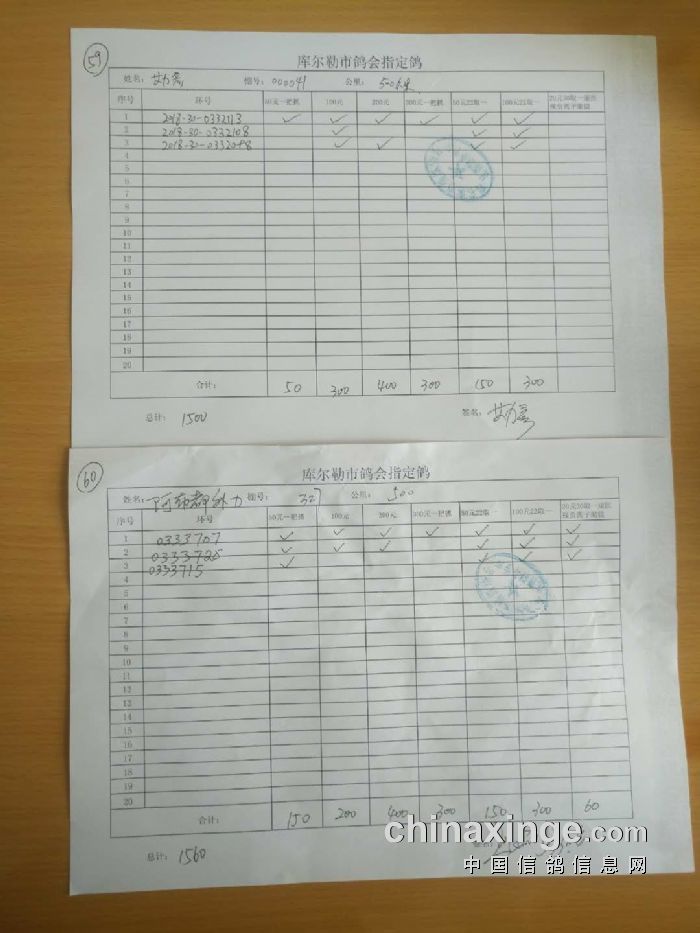 59
库尔勒市鸽会指定鸽
姓名: 棚号: 000041 公里: 500
序号 环号 50元一把抓 100元 200元 300元一把抓 50元22取一 100元22取一
1 2018-30-0332113 ✓ ✓ ✓ ✓ ✓ ✓
2 2018-30-0332108 ✓ ✓ ✓
3 ✓ ✓ ✓ ✓
4
5
6
7
8
9
10
11
12
13
14
15
16
17
18
19
20
合计: 50 300 400 300 150 300
总计: 1500 签名:
60
库尔勒市鸽会指定鸽
姓名: 棚号: 327 公里: 500
序号 环号 50元一把抓 100元 200元 300元一把抓 50元22取一 100元22取一
1 0333707 ✓ ✓ ✓ ✓ ✓ ✓ ✓
2 ✓ ✓ ✓ ✓ ✓ ✓
3 0333715 ✓ ✓ ✓ ✓
4
5
6
7
8
9
10
11
12
13
14
15
16
17
18
19
20
合计: 150 200 400 300 150 300 60
总计: 1560
chinaxinge.com
中国信鸽信息网